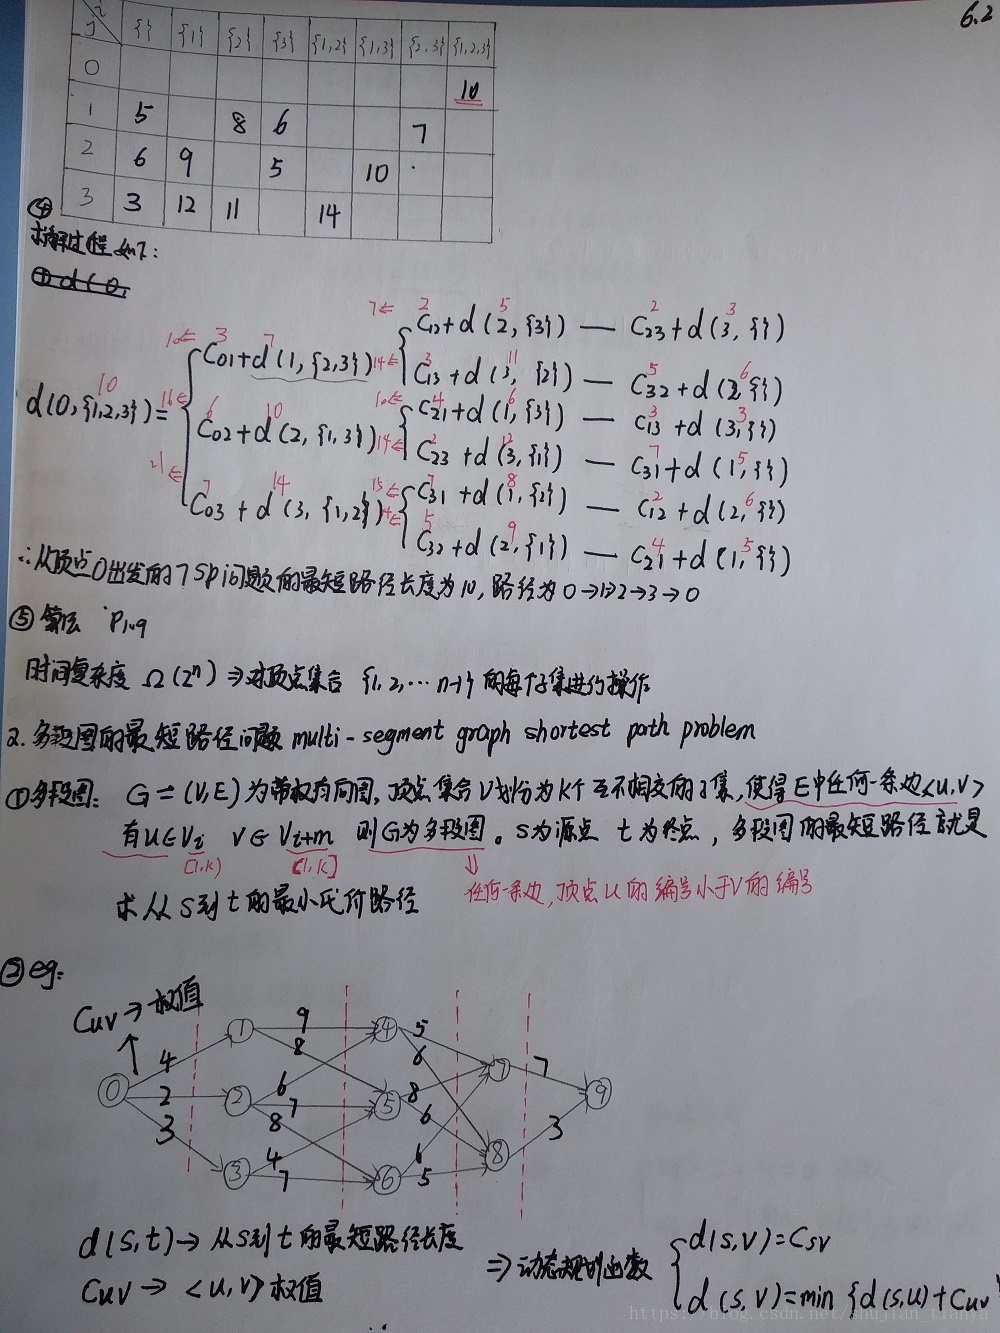 6.2
i
j
{} {1} {2} {3} {1,2} {1,3} {2,3} {1,2,3}
0 10
1 5 8 6 7
2 6 9 5 10
3 3 12 11 14
④
求解过程如下:
① d(0,
7⇐ 2 5 2 3
C12+d(2,{3}) — C23+d(3,{})
10⇐ 3 7
C01+d(1,{2,3})
14⇐ 3 11 5 6
C13+d(3,{2}) — C32+d(2,{})
10
d(0,{1,2,3})=
16⇐ 6 10
C02+d(2,{1,3})
10⇐ 4 6 3 3
C21+d(1,{3}) — C13+d(3,{})
14⇐ 2 12 7 5
C23+d(3,{1}) — C31+d(1,{})
21⇐ 7 14
C03+d(3,{1,2})
15⇐ 7 8 2 6
C31+d(1,{2}) — C12+d(2,{})
14⇐ 5 9 4 5
C32+d(2,{1}) — C21+d(1,{})
∴从顶点0出发的TSP问题的最短路径长度为10,路径为0→1→2→3→0
⑤算法
时间复杂度 Ω(2ⁿ) ⇒对顶点集合 {1,2,…n-1}的每个子集进行操作
2.多段图的最短路径问题 multi-segment graph shortest path problem
①多段图: G=(V,E)为带权有向图,顶点集合V划分为K个互不相交的子集,使得E中任何一条边<u,v>
有u∈Vi v∈Vi+m 则G为多段图。s为源点 t为终点,多段图的最短路径就是
[1,k) (1,k]
⇓
任何一条边,顶点u的编号小于v的编号
求从s到t的最小代价路径
②eg:
Cuv→权值
0 1 2 3 4 5 6 7 8 9
4 2 3
9 8 6 7 8 4 7
5 6 8 6 6 5
7 3
d(s,t)→从s到t的最短路径长度
Cuv→<u,v>权值
⇒动态规划函数
d(s,v)=Csv
d(s,v)=min{d(s,u)+Cuv}
https://blog.csdn.net/shujian_tianya